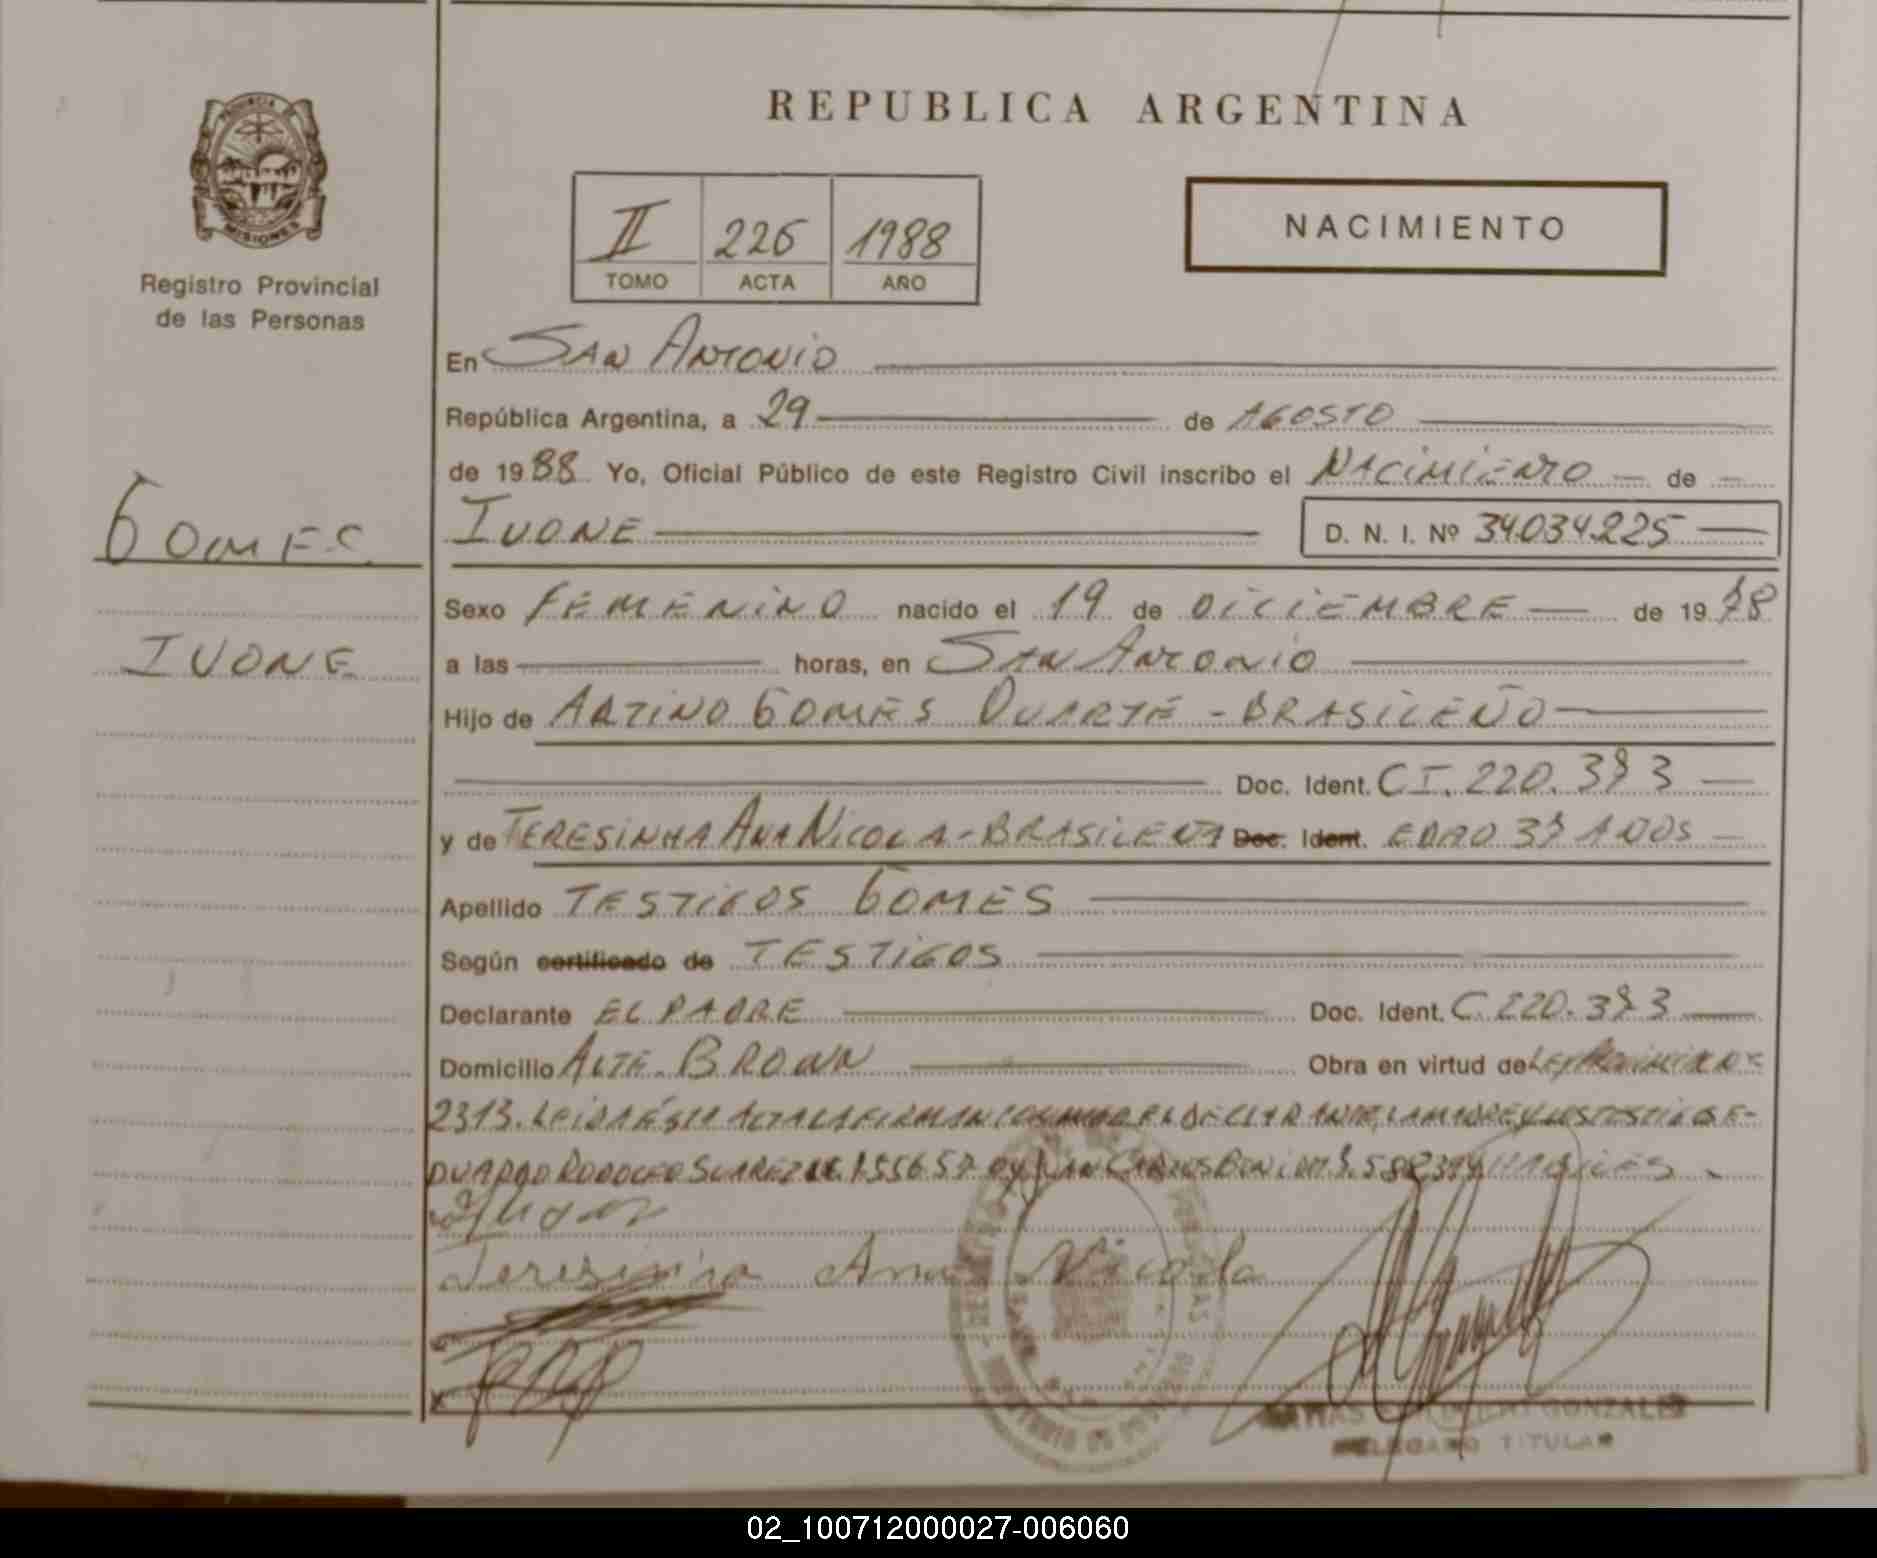 REPUBLICA ARGENTINA
PROVINCIA
MISIONES
Registro Provincial
de las Personas
II 226 1988
TOMO ACTA AÑO
NACIMIENTO
En SAN ANTONIO
República Argentina, a 29 de AGOSTO
de 1988 Yo, Oficial Público de este Registro Civil inscribo el NACIMIENTO de
GOMES
IVONE D. N. I. Nº 34.034.225
Sexo FEMENINO nacido el 19 de DICIEMBRE de 1978
IVONE
a las horas, en SAN ANTONIO
Hijo de ARTINO GOMES DUARTE - BRASILEÑO
Doc. Ident. CI. 220.373
y de TERESINHA ANA NICOLA - BRASILEÑA Doc. Ident. EDAD 37 AÑOS
Apellido TESTIGOS GOMES
Según certificado de TESTIGOS
Declarante EL PADRE Doc. Ident. C. 220.373
Domicilio ALTE. BROWN Obra en virtud de LEY
2313. LEIDA ÉSTA ACTA LA FIRMAN CONMIGO EL DECLARANTE, LA MADRE Y LOS TESTIGOS E-
DUARDO RODOLFO SUAREZ Y JUAN CARLOS HABILES
Teresinha Ana Nicola
GONZALEZ
DELEGADO TITULAR
02_100712000027-006060